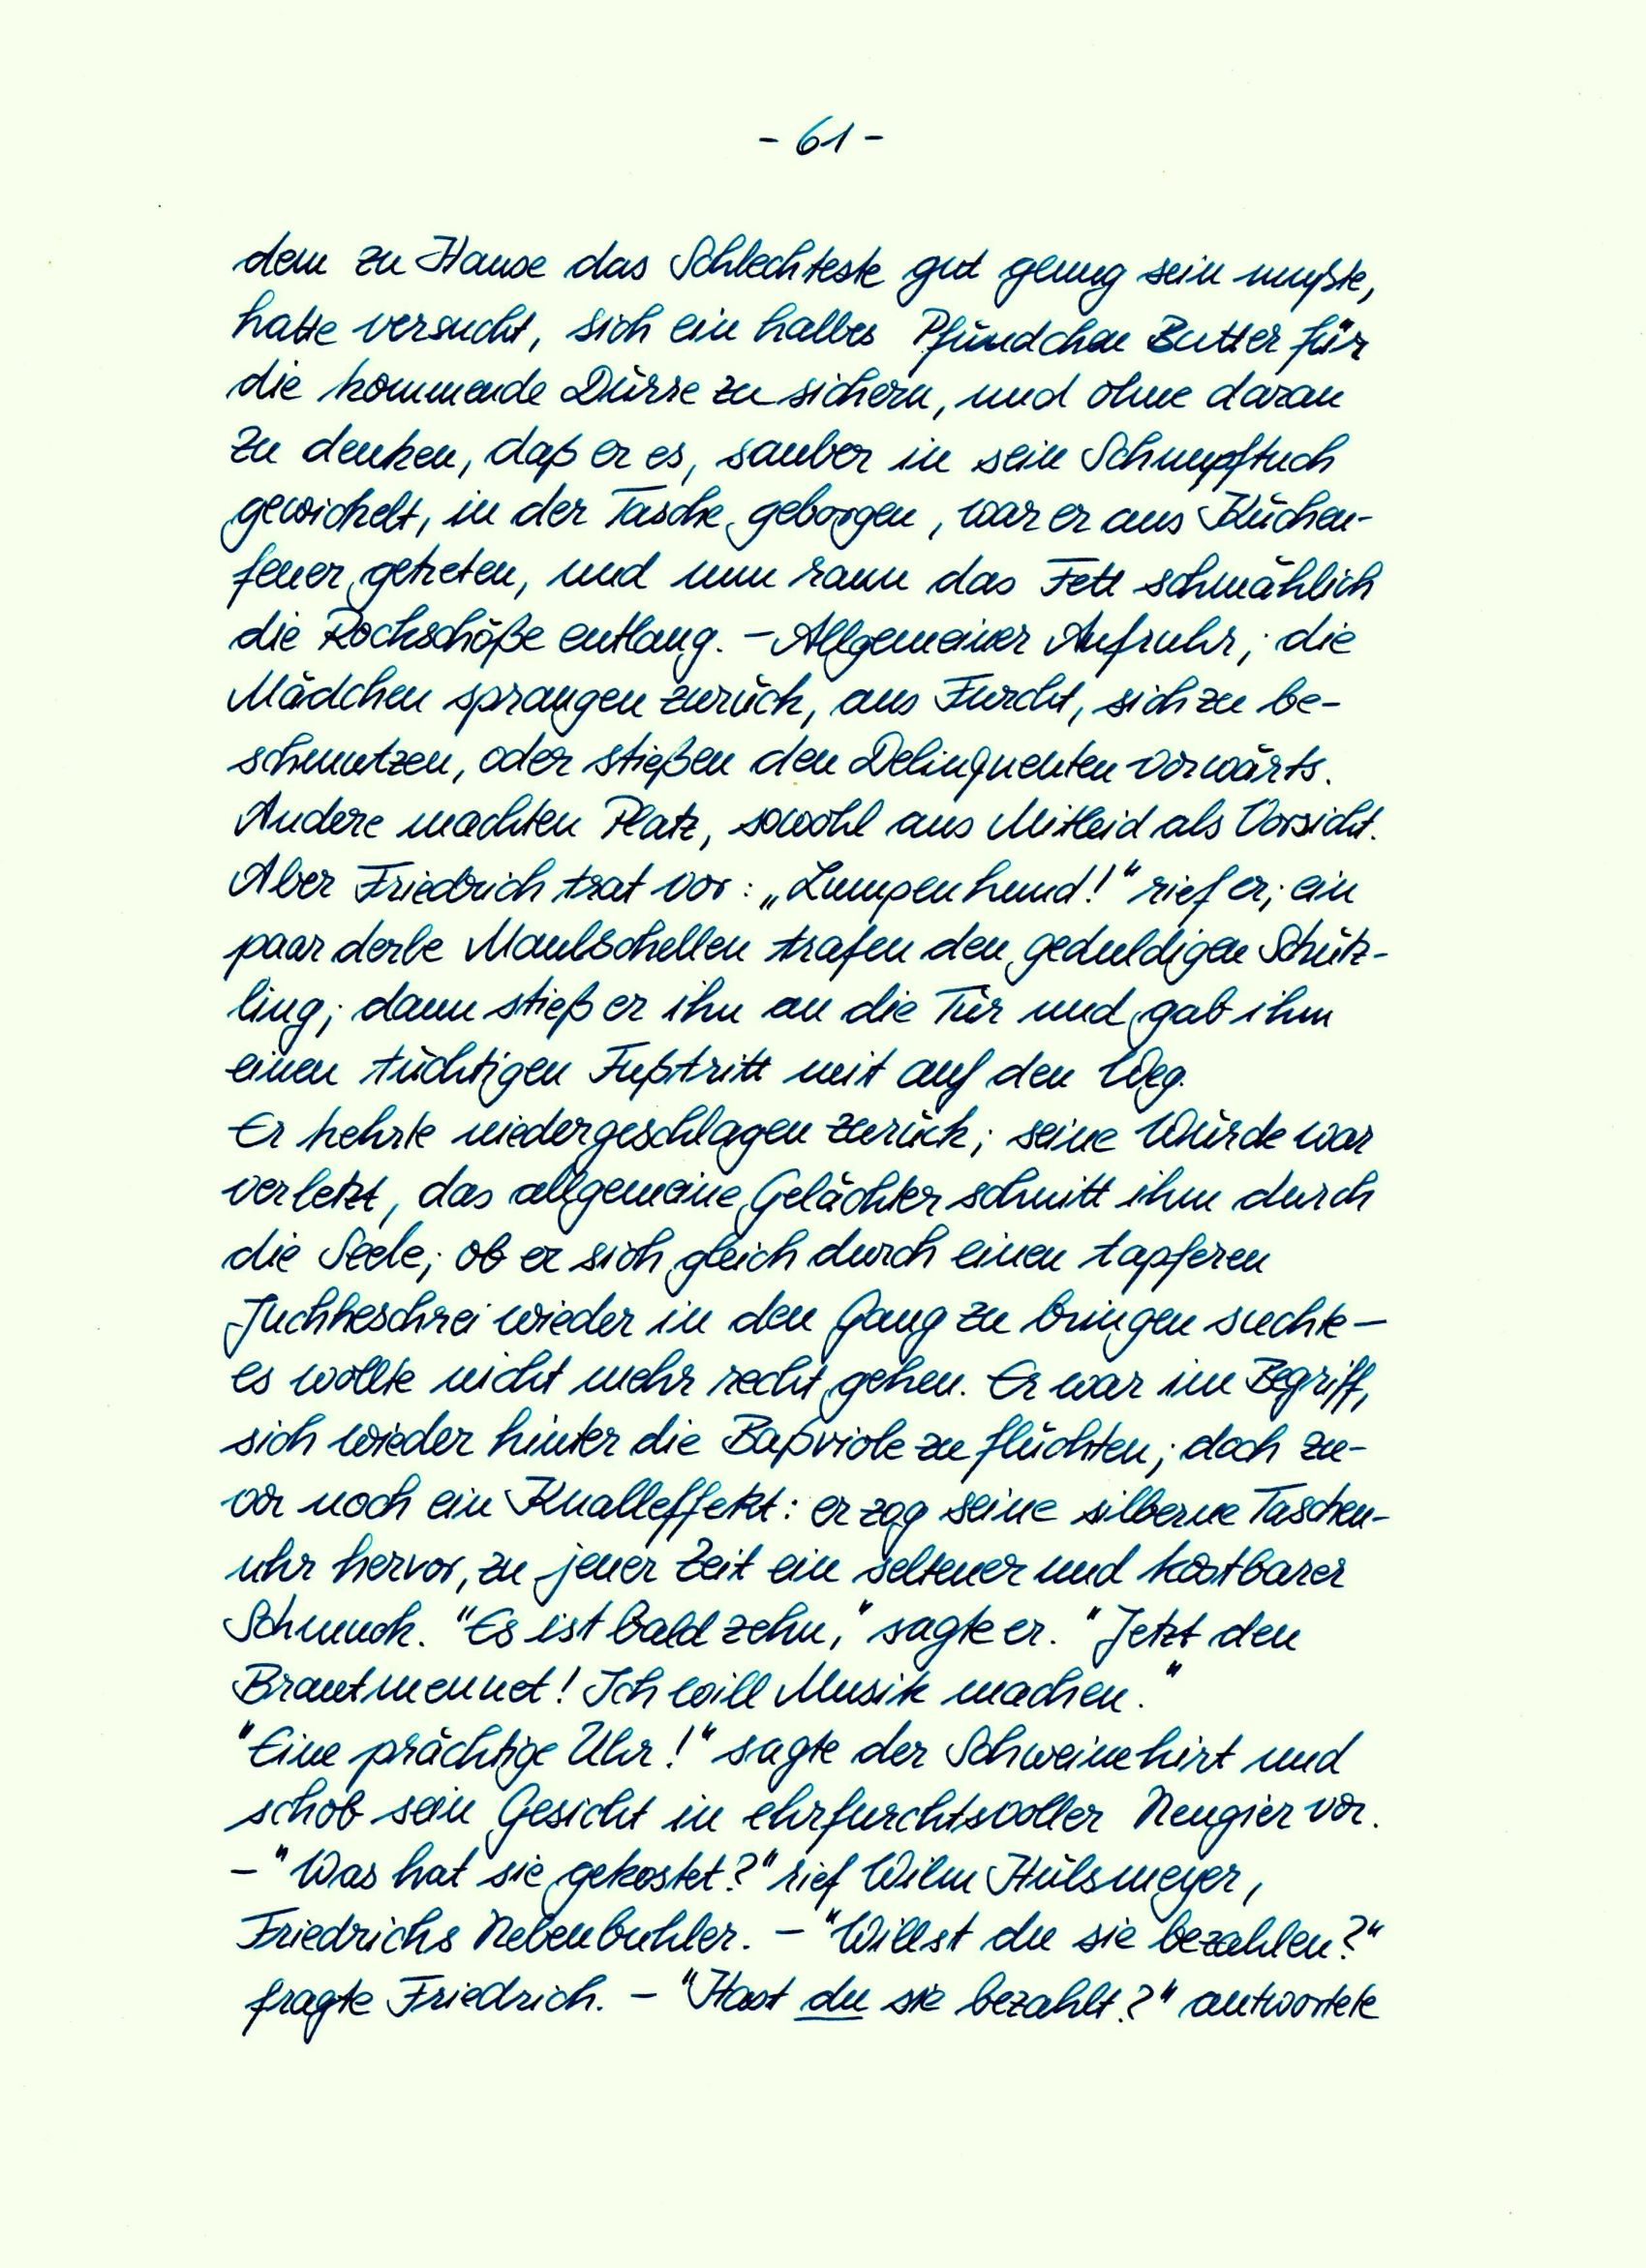 - 61 -
dem zu Hause das Schlechteste gut genug sein mußte,
hatte versucht, sich ein halbes Pfündchen Butter für
die kommende Dürre zu sichern, und ohne daran
zu denken, daß er es, sauber in sein Schnupftuch
gewickelt, in der Tasche geborgen, war er ans Küchen-
feuer getreten, und nun rann das Fett schmählich
die Rockschöße entlang. – Allgemeiner Aufruhr; die
Mädchen sprangen zurück, aus Furcht, sich zu be-
schmutzen, oder stießen den Delinquenten vorwärts.
Andere machten Platz, sowohl aus Mitleid als Vorsicht.
Aber Friedrich trat vor: „Lumpenhund!“ rief er; ein
paar derbe Maulschellen trafen den geduldigen Schütz-
ling; dann stieß er ihn an die Tür und gab ihm
einen tüchtigen Fußtritt mit auf den Weg.
Er kehrte niedergeschlagen zurück; seine Würde war
verletzt, das allgemeine Gelächter schnitt ihm durch
die Seele; ob er sich gleich durch einen tapferen
Juchheschrei wieder in den Gang zu bringen suchte –
es wollte nicht mehr recht gehen. Er war im Begriff,
sich wieder hinter die Baßviole zu flüchten; doch zu-
vor noch ein Knalleffekt: er zog seine silberne Taschen-
uhr hervor, zu jener Zeit ein seltener und kostbarer
Schmuck. "Es ist bald zehn," sagte er. "Jetzt den
Brautmenuet! Ich will Musik machen."
"Eine prächtige Uhr!" sagte der Schweinehirt und
schob sein Gesicht in ehrfurchtsvoller Neugier vor.
– "Was hat sie gekostet?" rief Wilm Hülsmeyer,
Friedrichs Nebenbuhler. – "Willst du sie bezahlen?"
fragte Friedrich. – "Hast du sie bezahlt?" antwortete